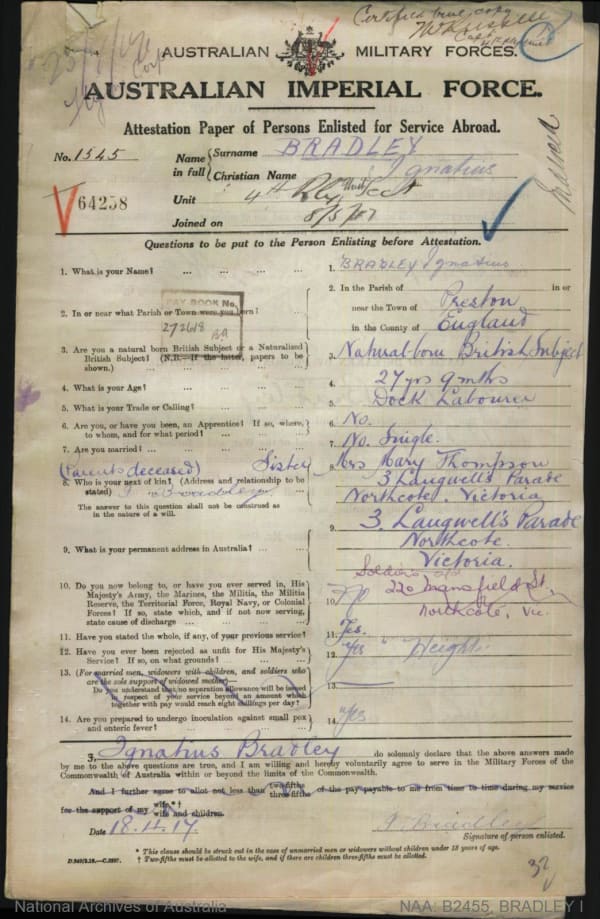 Certified true copy
AUSTRALIAN MILITARY FORCES.
AUSTRALIAN IMPERIAL FORCE.
Attestation Paper of Persons Enlisted for Service Abroad.
No. 1545
Name in full { Surname BRADLEY
Christian Name Ignatius
64258
Unit 4th Rly Unit
Joined on
Questions to be put to the Person Enlisting before Attestation.
1. What is your Name? ... ... ... ...
1. BRADLEY Ignatius
2. In or near what Parish or Town were you born? ...
2. In the Parish of in or
near the Town of Preston
in the County of England
PAY BOOK No.
27268
3. Are you a natural born British Subject or a Naturalized
British Subject? (N.B.—If the latter, papers to be
shown.) ... ...
3. Natural born British Subject
4. What is your Age? ... ... ... ...
4. 27 yrs 9 mths
5. What is your Trade or Calling? ... ... ...
5. Dock Labourer
6. Are you, or have you been, an Apprentice? If so, where,
to whom, and for what period? ... ... ...
6. No.
7. Are you married? ... ... ... ...
7. No. Single.
(Parents deceased) Sister
8. Who is your next of kin? (Address and relationship to be
stated) I Bradley
The answer to this question shall not be construed as
in the nature of a will.
8. Mrs Mary Thompson
3 Langwell's Parade
Northcote. Victoria
9. What is your permanent address in Australia? ... ...
9. 3. Langwell's Parade
Northcote.
Victoria.
Soldier's
220 Mansfield St,
Northcote, Vic.
10. Do you now belong to, or have you ever served in, His
Majesty's Army, the Marines, the Militia, the Militia
Reserve, the Territorial Force, Royal Navy, or Colonial
Forces? If so, state which, and if not now serving,
state cause of discharge ... ... ...
10. No
11. Have you stated the whole, if any, of your previous service?
11. Yes.
12. Have you ever been rejected as unfit for His Majesty's
Service? If so, on what grounds? ... ...
12. Yes Height.
13. (For married men, widowers with children, and soldiers who
are the sole support of widowed mother—
Do you understand that no separation allowance will be issued
in respect of your service beyond an amount which
together with pay would reach eight shillings per day?
13. —
14. Are you prepared to undergo inoculation against small pox
and enteric fever? ... ... ...
14. Yes
I, Ignatius Bradley do solemnly declare that the above answers made
by me to the above questions are true, and I am willing and hereby voluntarily agree to serve in the Military Forces of the
Commonwealth of Australia within or beyond the limits of the Commonwealth.
And I further agree to allot not less than two-fifths three-fifths of the pay payable to me from time to time during my service
for the support of my wife*† wife and children.
Date 18.4.17.
I. Bradley
Signature of person enlisted.
* This clause should be struck out in the case of unmarried men or widowers without children under 18 years of age.
† Two-fifths must be allotted to the wife, and if there are children three-fifths must be allotted.
32
National Archives of Australia
NAA: B2455, BRADLEY I